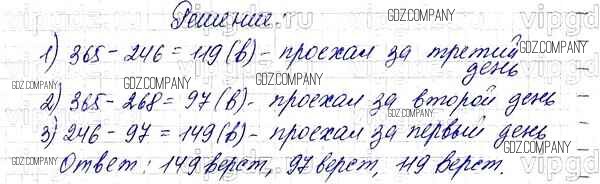 Решение.
1) 365 - 246 = 119 (в) - проехал за третий
день
2) 365 - 268 = 97 (в) - проехал за второй день
3) 246 - 97 = 149 (в) - проехал за первый день
Ответ: 149 верст, 97 верст, 119 верст.
GDZ.COMPANY
GDZ.COMPANY
GDZ.COMPANY
GDZ.COMPANY
GDZ.COMPANY
GDZ.COMPANY
GDZ.COMPANY